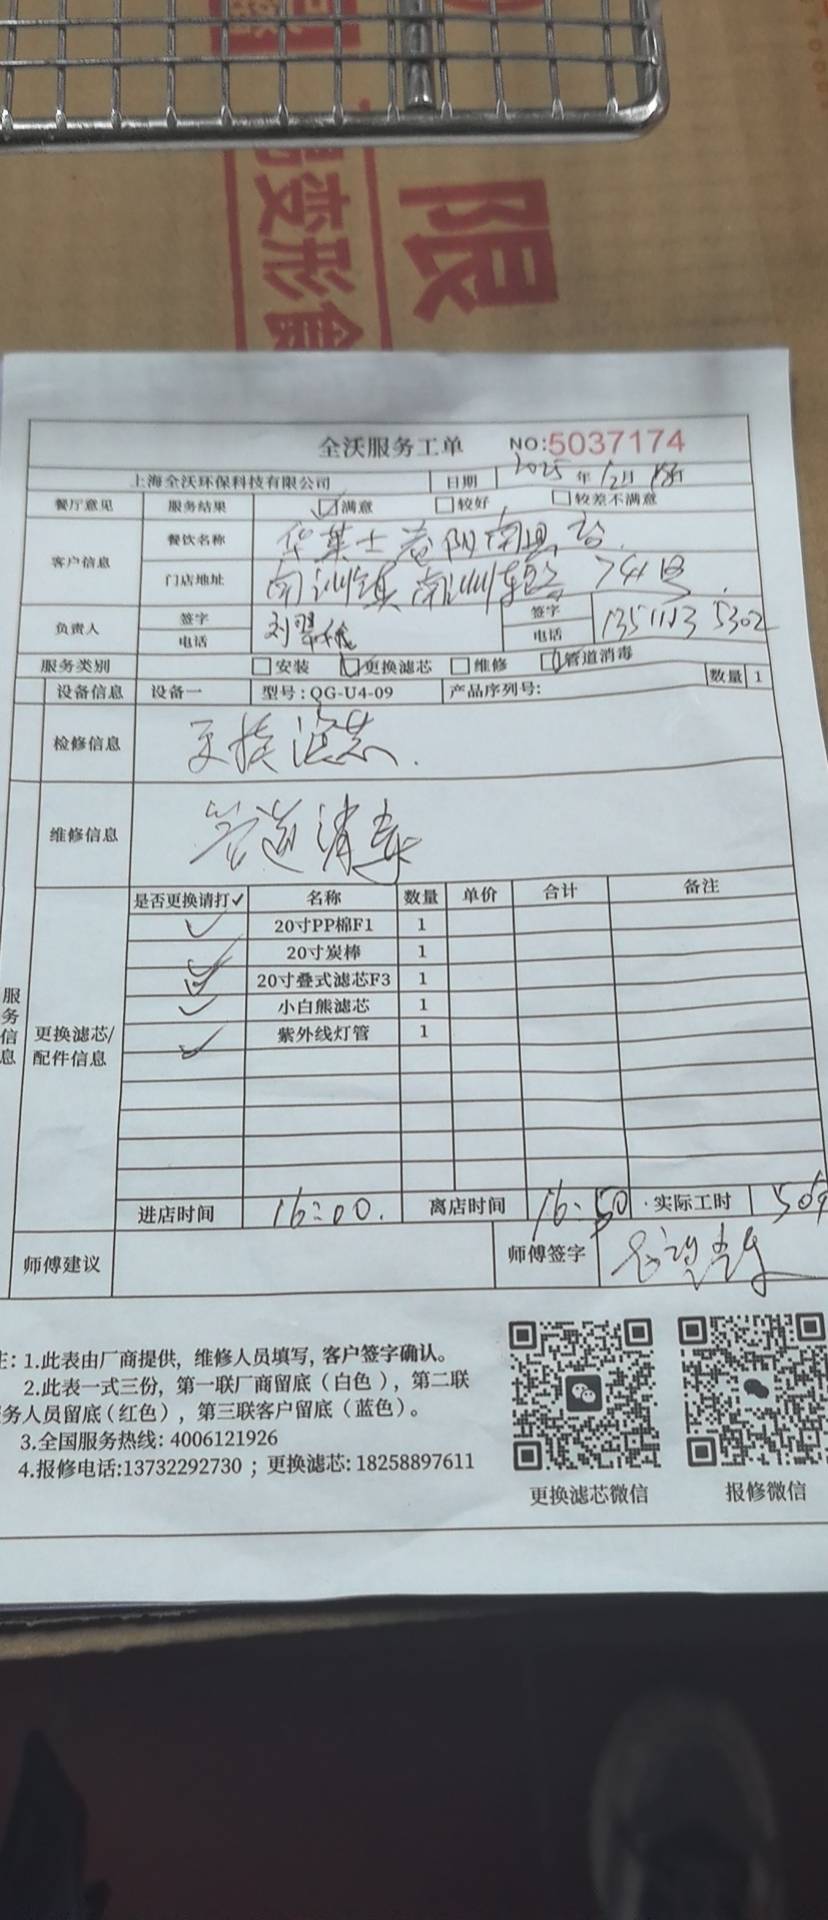 限
易变形食
全沃服务工单 NO:5037174
上海全沃环保科技有限公司 日期 2025年12月
餐厅意见 服务结果 ☑满意 □较好 □较差不满意
客户信息 餐饮名称 华莱士益阳南县店
门店地址 南洲镇南洲东路741号
负责人 签字 刘翠 签字
电话 电话 135 1113 5302
服务类别 □安装 ☑更换滤芯 □维修 ☑管道消毒
设备信息 设备一 型号:QG-U4-09 产品序列号: 数量 1
检修信息 更换滤芯.
维修信息 管道消毒
服务信息
更换滤芯/配件信息
是否更换请打✓ 名称 数量 单价 合计 备注
✓ 20寸PP棉F1 1
✓ 20寸炭棒 1
✓ 20寸叠式滤芯F3 1
✓ 小白熊滤芯 1
✓ 紫外线灯管 1
进店时间 16:00. 离店时间 16:50 实际工时 50分
师傅建议 师傅签字
注：1.此表由厂商提供, 维修人员填写, 客户签字确认。
2.此表一式三份，第一联厂商留底（白色），第二联
服务人员留底（红色），第三联客户留底（蓝色）。
3.全国服务热线: 4006121926
4.报修电话:13732292730 ；更换滤芯: 18258897611
更换滤芯微信 报修微信